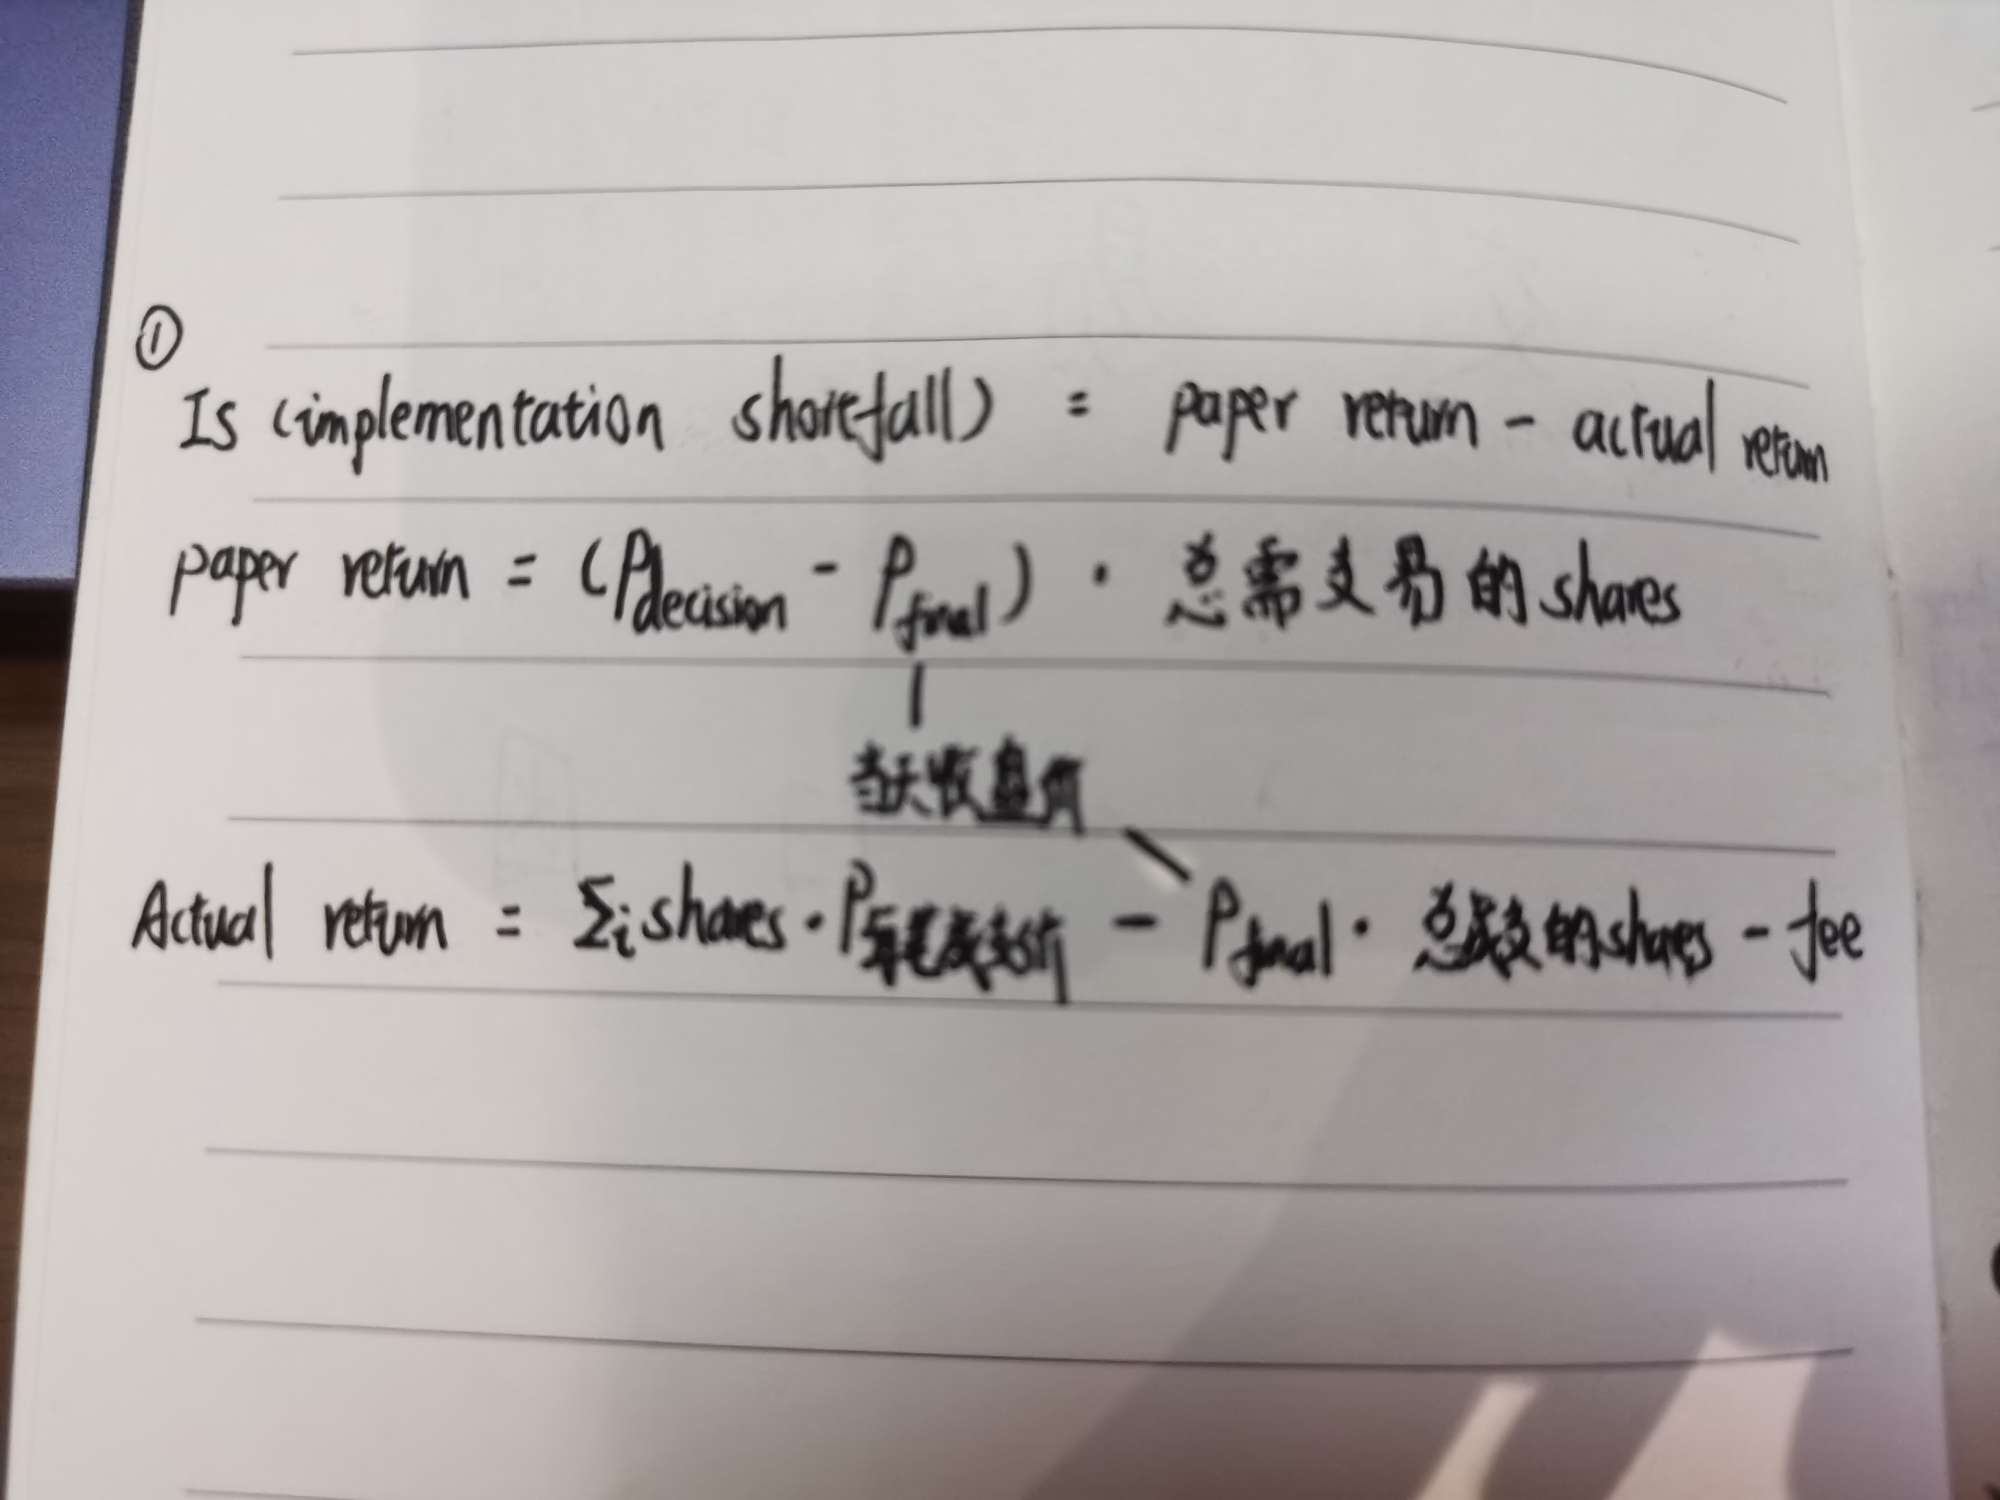 ①
Is (implementation shortfall) = paper return - actual return
paper return = (Pdecision - Pfinal) · 总需交易的shares
当天收盘价
Actual return = Σi shares · P每笔成交价 - Pfinal · 总成交的shares - fee